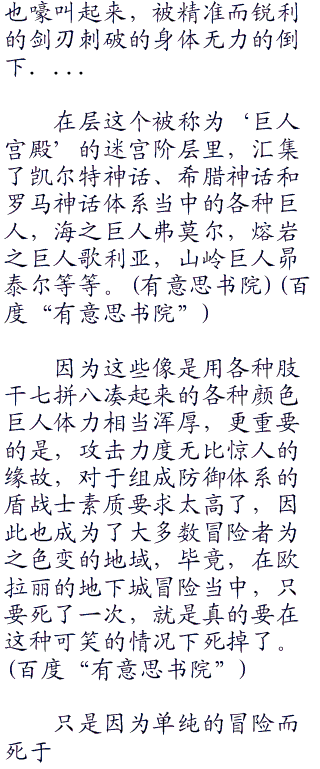 也嚎叫起来，被精准而锐利
的剑刃刺破的身体无力的倒
下．...
在层这个被称为‘巨人
宫殿’的迷宫阶层里，汇集
了凯尔特神话、希腊神话和
罗马神话体系当中的各种巨
人，海之巨人弗莫尔，熔岩
之巨人歌利亚，山岭巨人昴
泰尔等等。(有意思书院)(百
度“有意思书院”)
因为这些像是用各种肢
干七拼八凑起来的各种颜色
巨人体力相当浑厚，更重要
的是，攻击力度无比惊人的
缘故，对于组成防御体系的
盾战士素质要求太高了，因
此也成为了大多数冒险者为
之色变的地域，毕竟，在欧
拉丽的地下城冒险当中，只
要死了一次，就是真的要在
这种可笑的情况下死掉了。
(百度“有意思书院”)
只是因为单纯的冒险而
死于